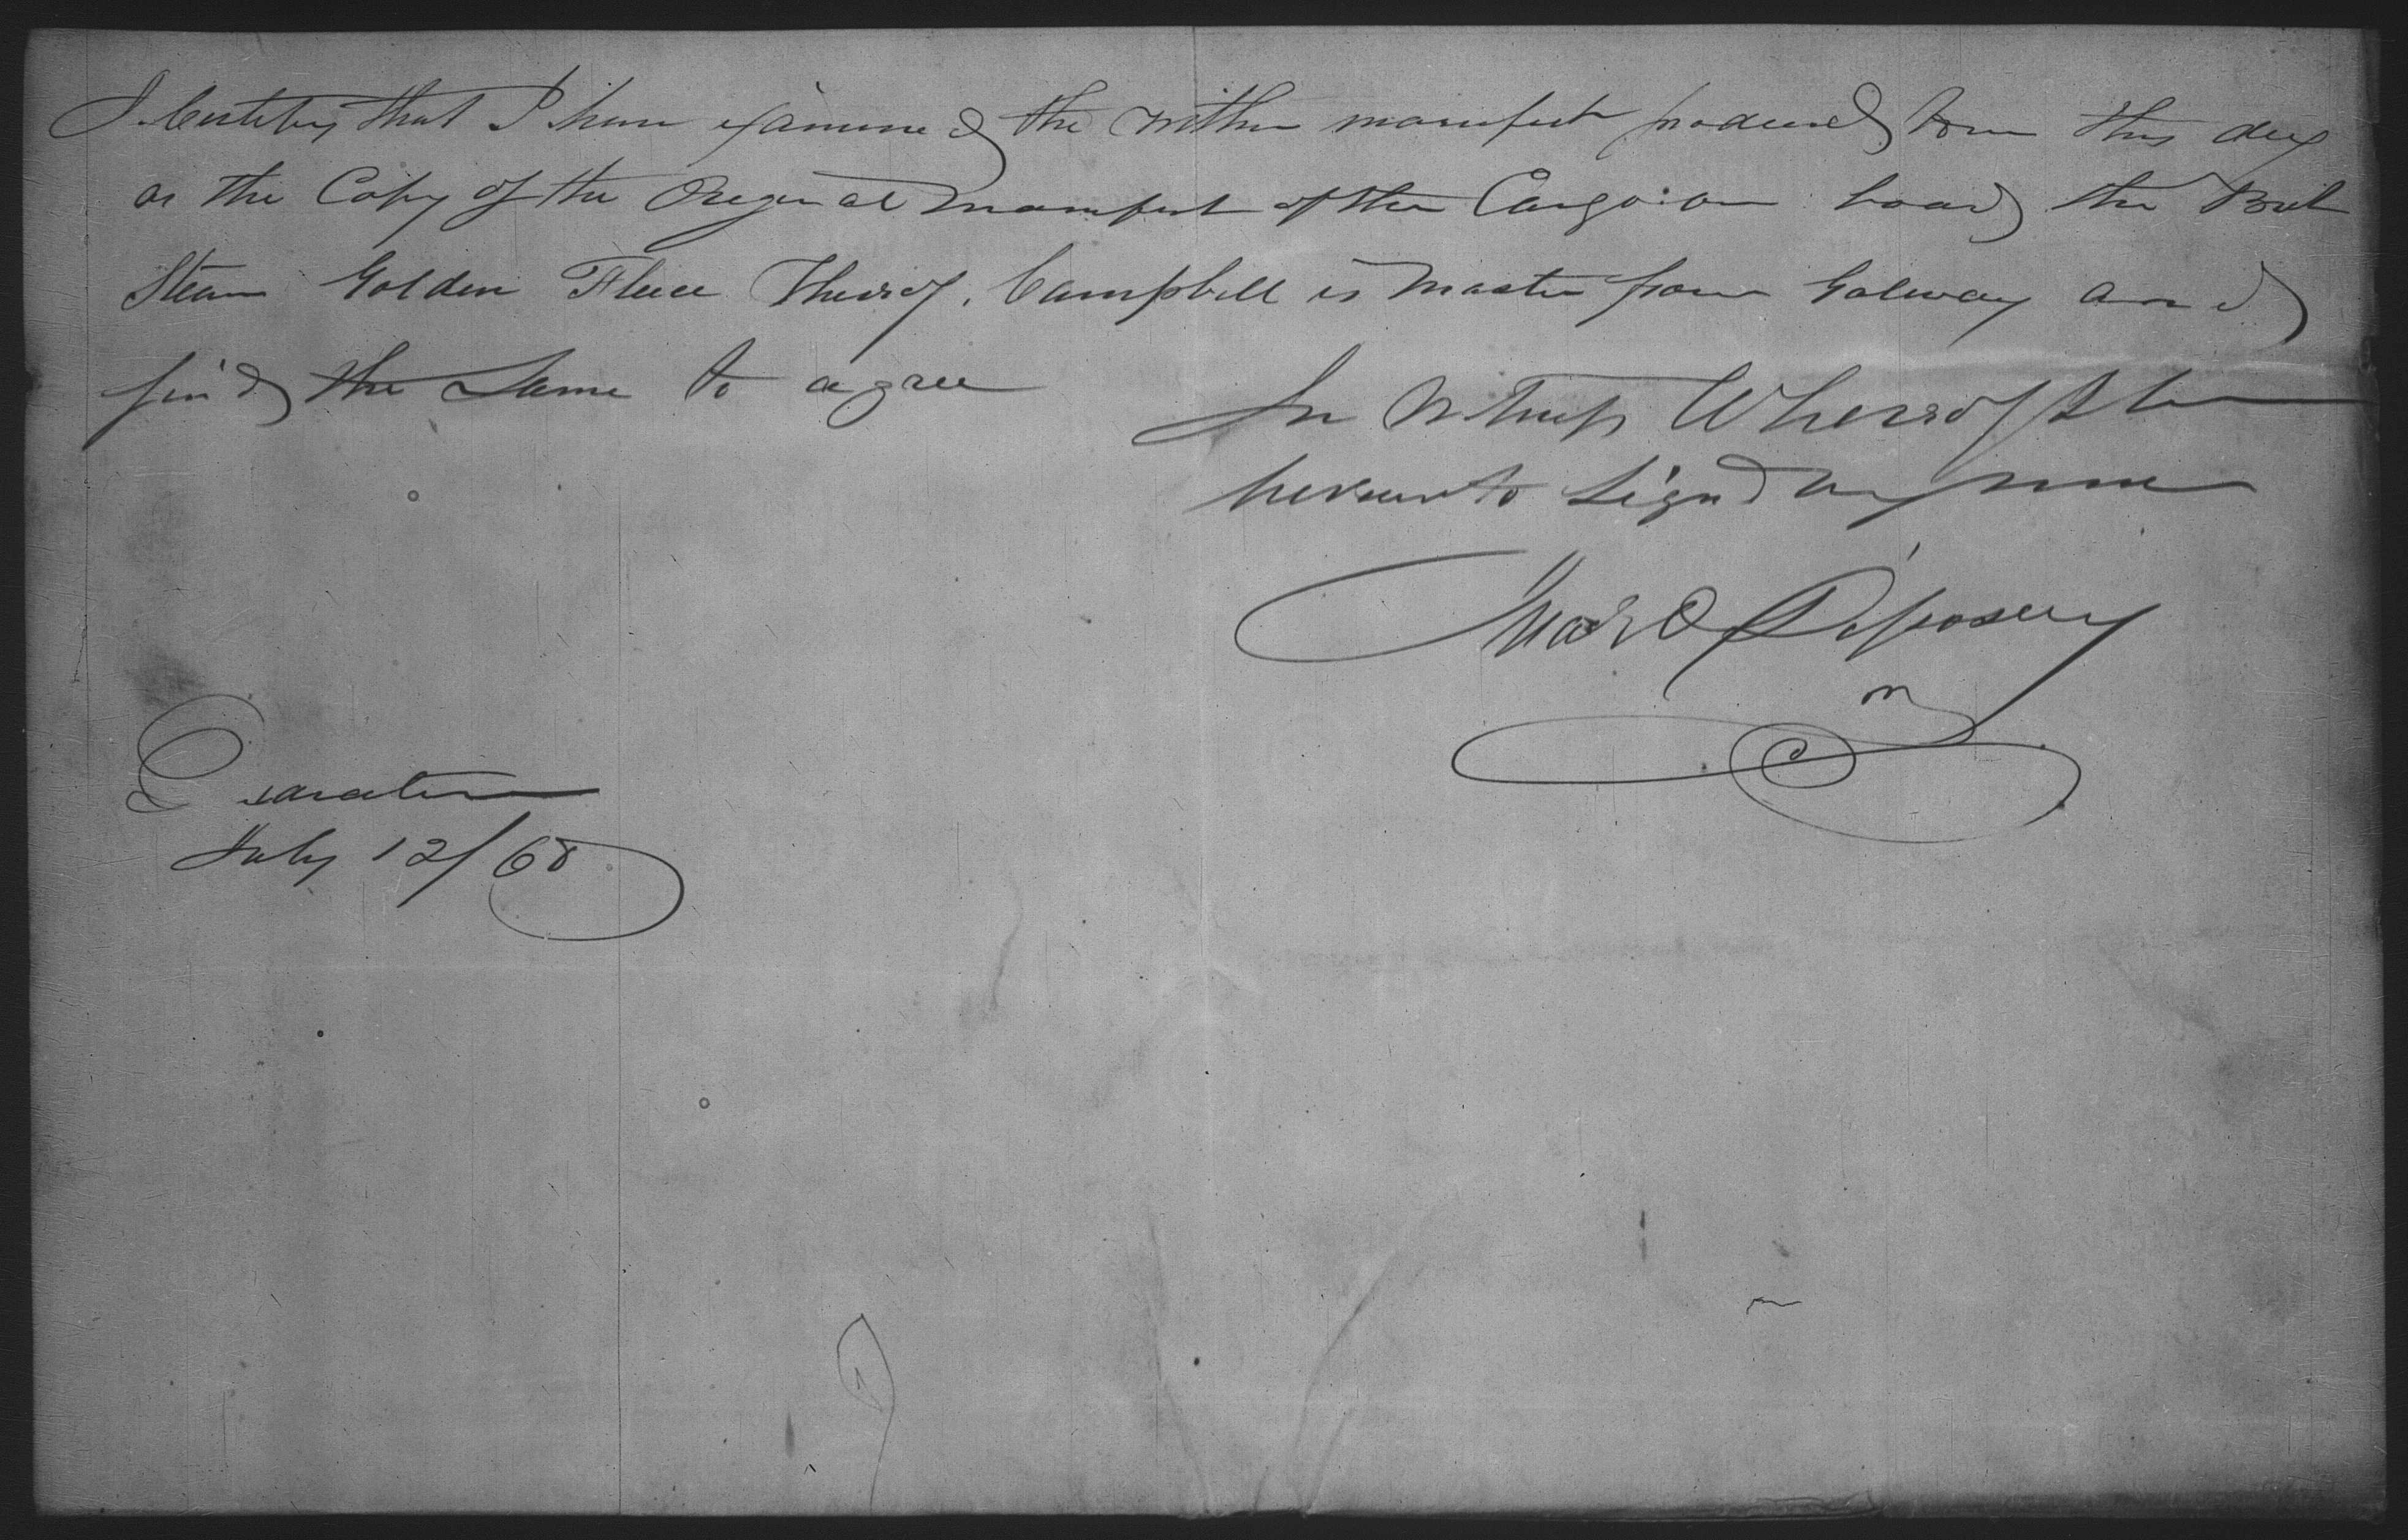 I Certify that I have examined the within manifest produced to me this day
as the Copy of the Original manifest of the Cargo on board the Brit
Steam Golden Fleece Whereof Campbell is Master from Galway and
find the Same to agree
In Witness Whereof I have
hereunto Signd my name
July 12/68